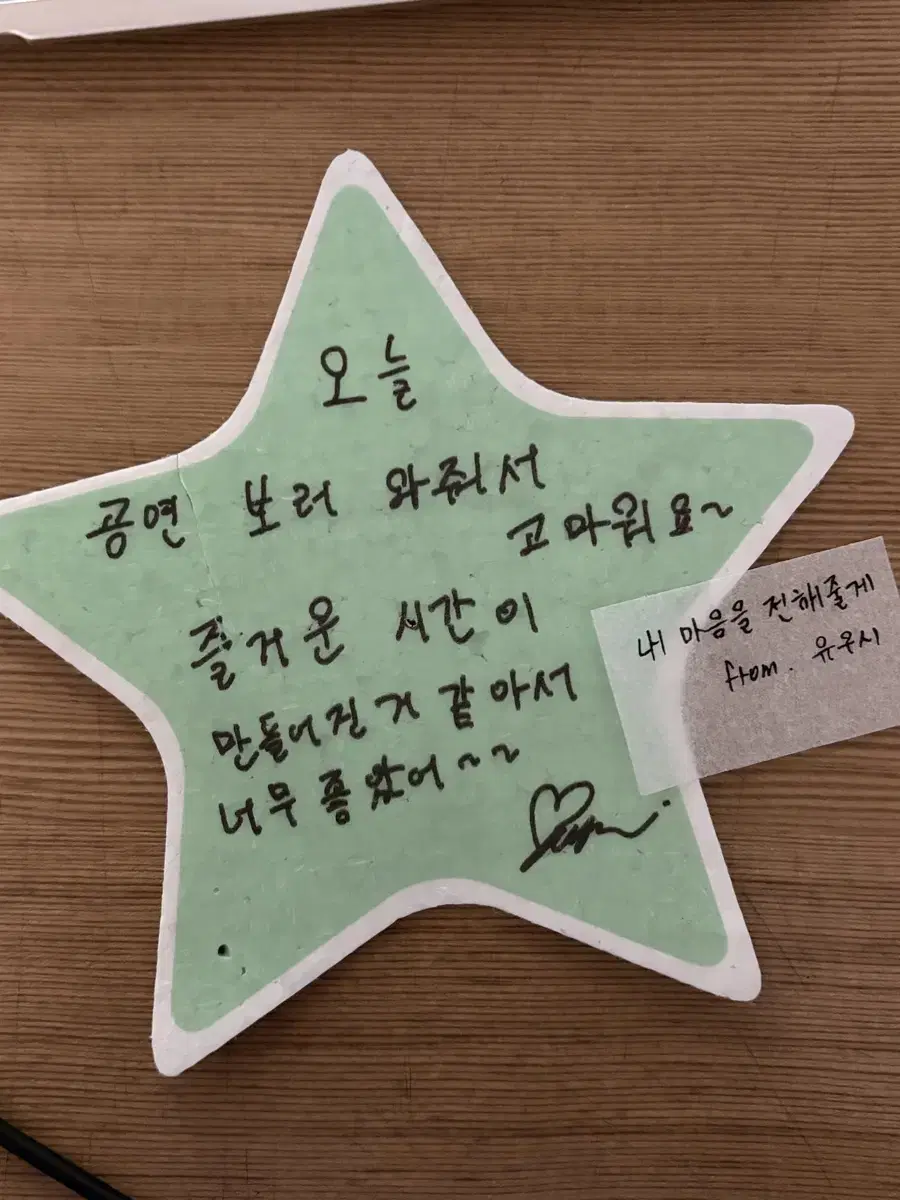 오늘
공연 보러 와줘서
고마워요~
즐거운 시간이
만들어진 거 같아서
너무 좋았어~~
내 마음을 전해줄게
from. 유우시